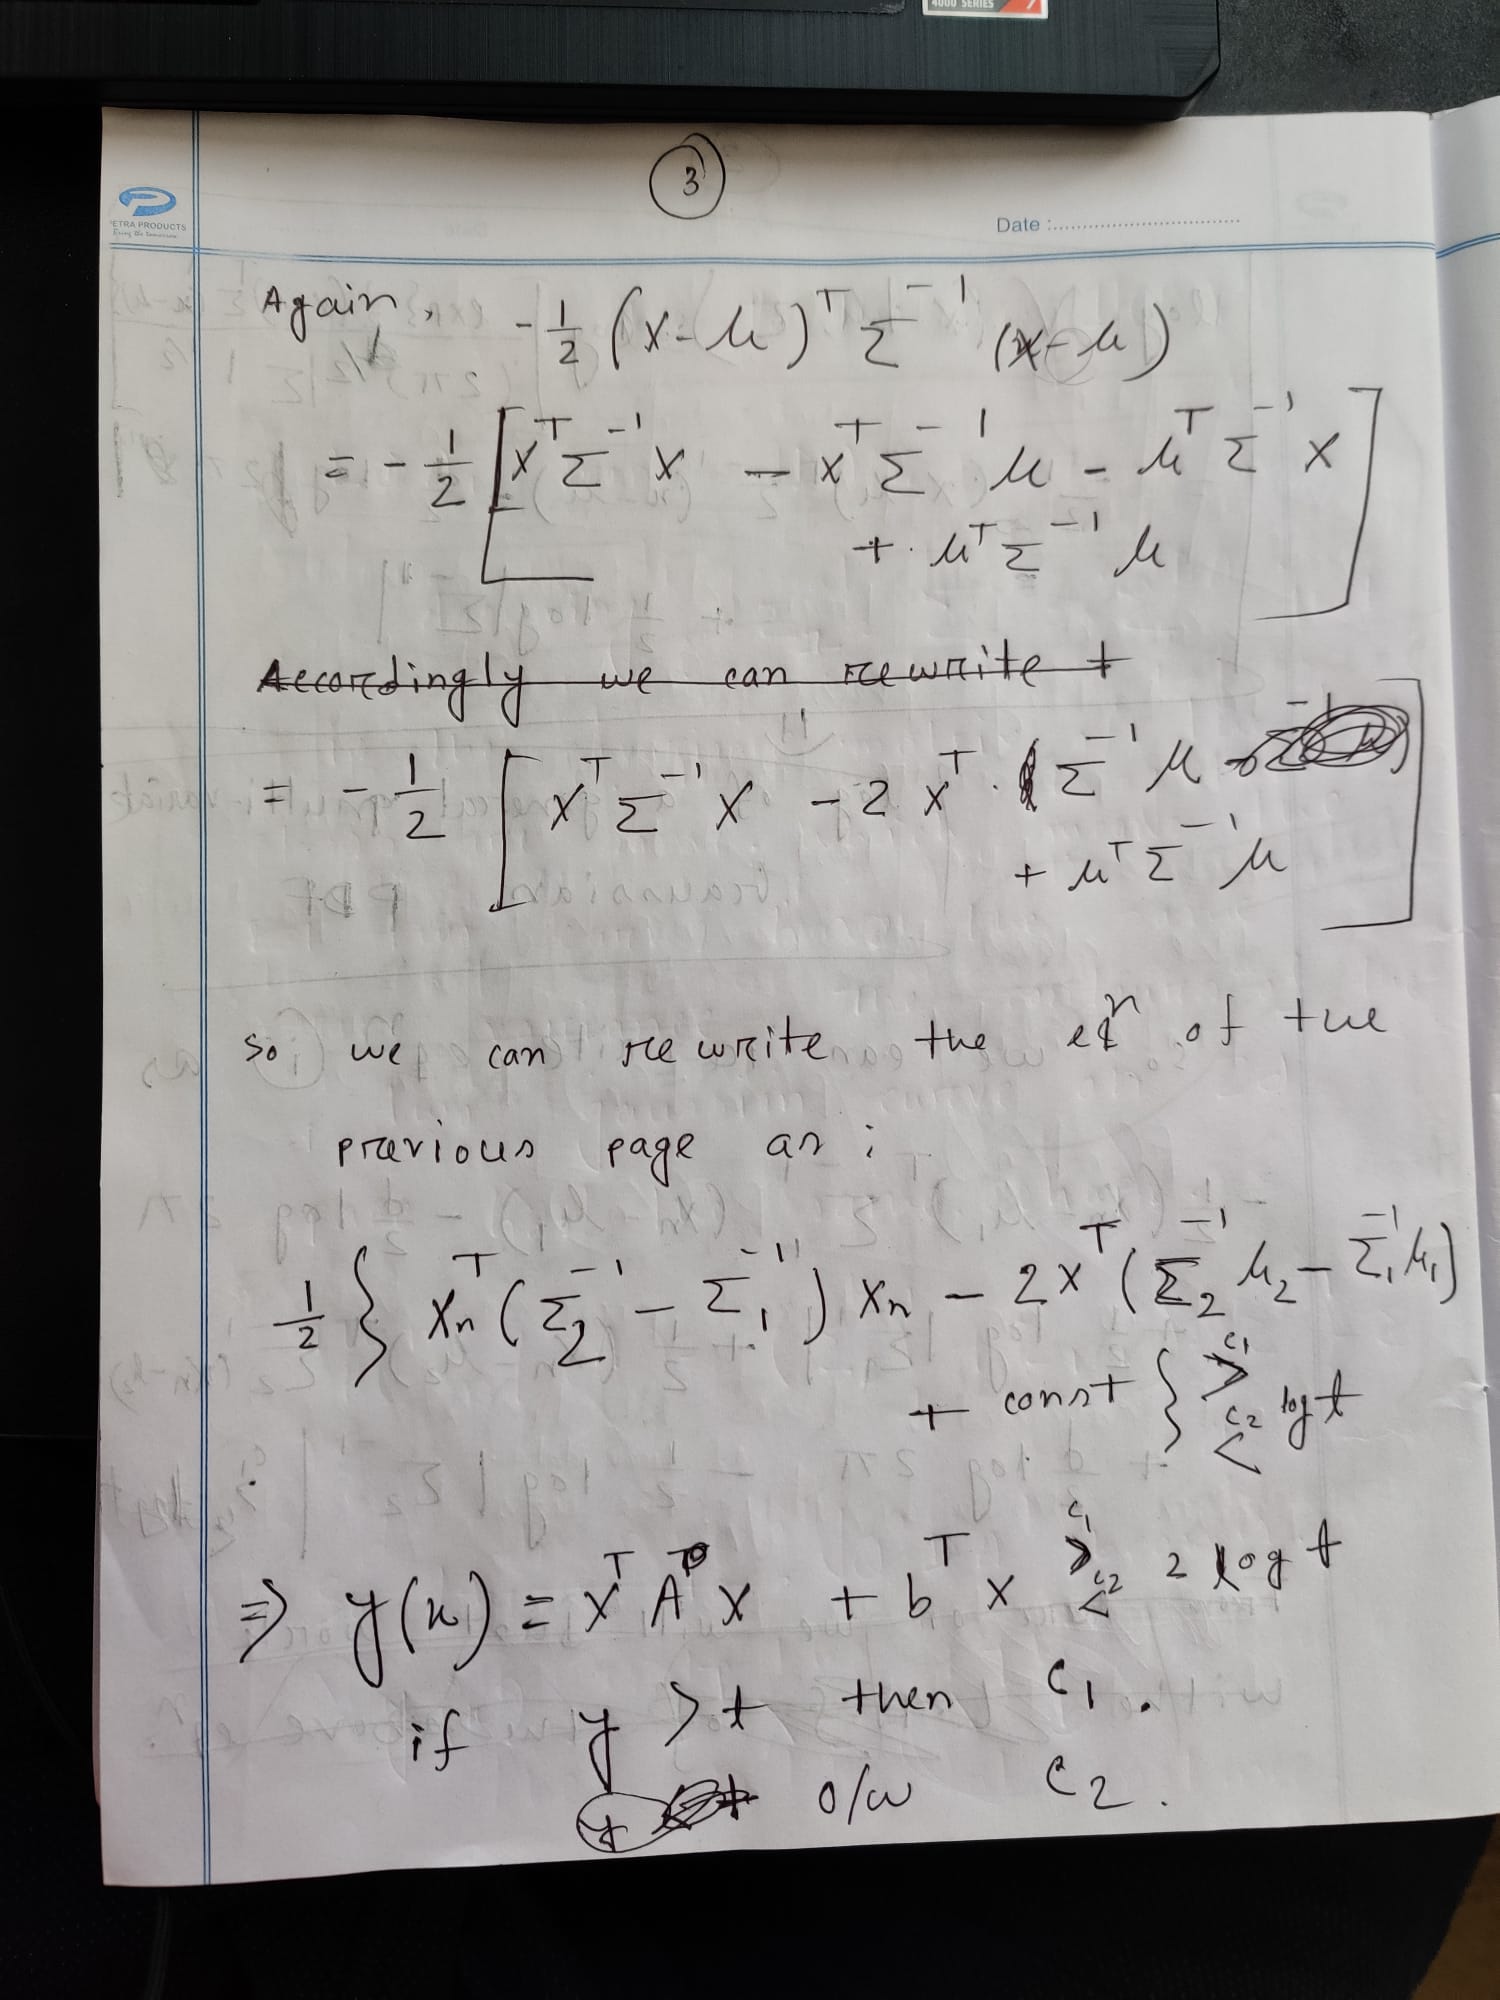 4000 SERIES 7
3
PETRA PRODUCTS
Bring the tomorrow
Date :
Again, -1/2 (x-μ)ᵀ Σ⁻¹ (x-μ)
= -1/2 [xᵀ Σ⁻¹ x - xᵀ Σ⁻¹ μ - μᵀ Σ⁻¹ x
+ μᵀ Σ⁻¹ μ]
Accordingly we can rewrite t
= -1/2 [xᵀ Σ⁻¹ x - 2 xᵀ · Σ⁻¹ μ
+ μᵀ Σ⁻¹ μ]
so we can rewrite the eqⁿ of the
previous page as :
1/2 { xₙᵀ (Σ₂⁻¹ - Σ₁⁻¹) xₙ - 2xᵀ (Σ₂⁻¹ μ₂ - Σ₁⁻¹ μ₁)
+ const } >^c₁ <^c₂ log t
⇒ y(x) = xᵀ A x + bᵀ x >^c₁ <^c₂ 2 log t
if y > t then C₁ .
o/w C₂ .